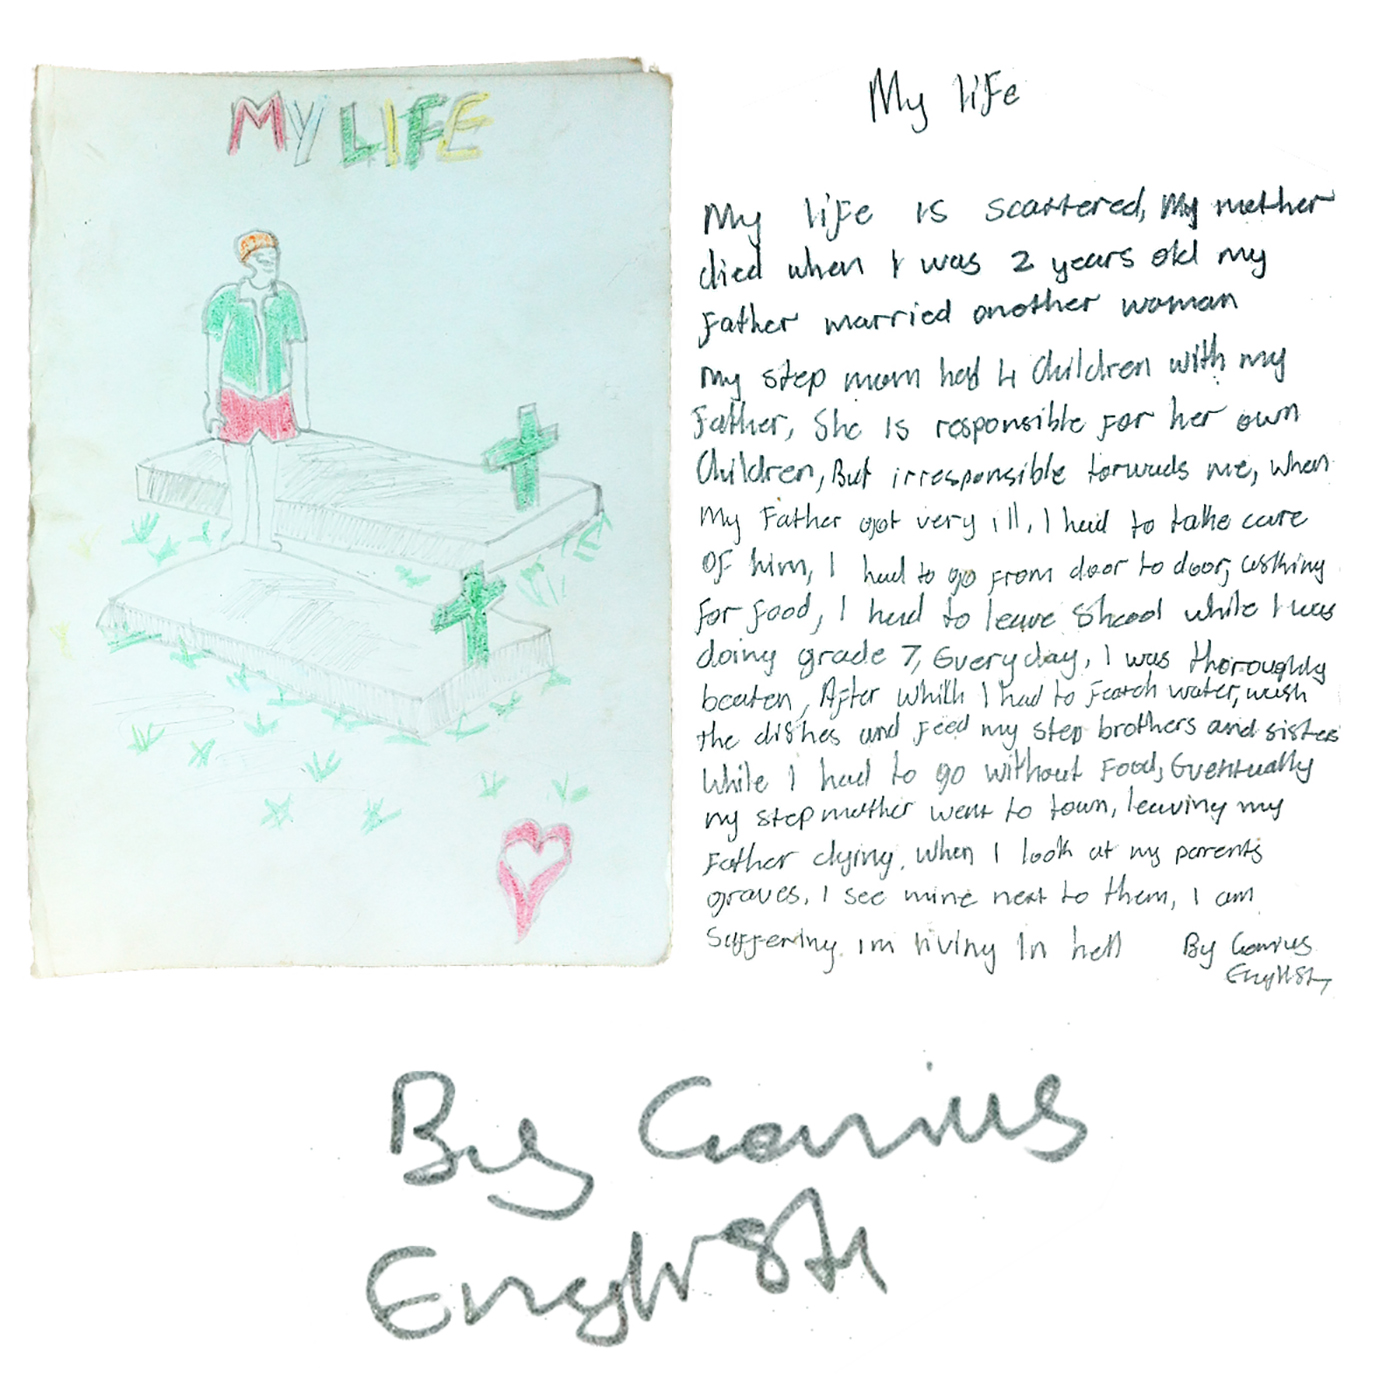 MY LIFE
My life
My life is scattered, My mother
died when I was 2 years old my
Father married another woman
My step mom had 4 Children with my
Father, She is responsible For her own
Children, But irresponsible torwads me, when
My Father got very ill, I had to take care
OF him, I had to go From door to door, asking
For food, I had to leave Shcool while I was
doing grade 7, Everyday, I was thoroughly
beaten, After which I had to Feach water, wash
the dishes and Feed my step brothers and sisters
While I had to go without Food, Eventually
my stepmother went to town, leaving my
Father dying. When I look at my parents
graves, I see mine next to them, I am
Suffering. im living In hell
By Genius
English
By Genius
English